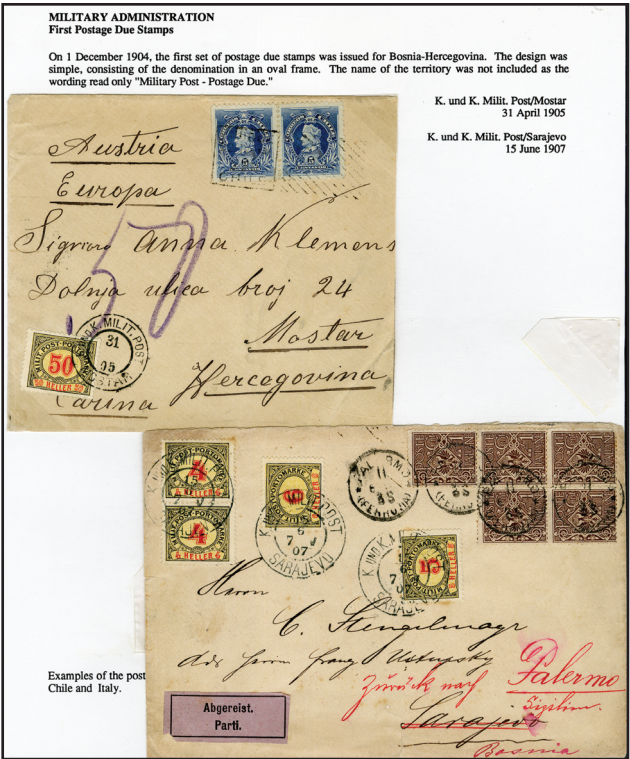 MILITARY ADMINISTRATION
First Postage Due Stamps
On 1 December 1904, the first set of postage due stamps was issued for Bosnia-Hercegovina. The design was
simple, consisting of the denomination in an oval frame. The name of the territory was not included as the
wording read only "Military Post - Postage Due."
K. und K. Milit. Post/Mostar
31 April 1905
K. und K. Milit. Post/Sarajevo
15 June 1907
Austria
Europa
Anna Klemens
50
Dolnja ulica broj 24
Mostar
Hercegovina
Carina
5 5
K. UND K. MILIT. POST
31
05
MOSTAR
50
50 HELLER 50
4
4 HELLER 4
4
4 HELLER 4
K. UND K. MILIT. POST
7 07
SARAJEVO
6
SARAJEVO
11
(FERROVIA)
Herrn
C. Stengelmayr
Zurück nach Palermo
Sizilien
Sarajevo
Bosnia
Abgereist.
Parti.
Examples of the post
Chile and Italy.